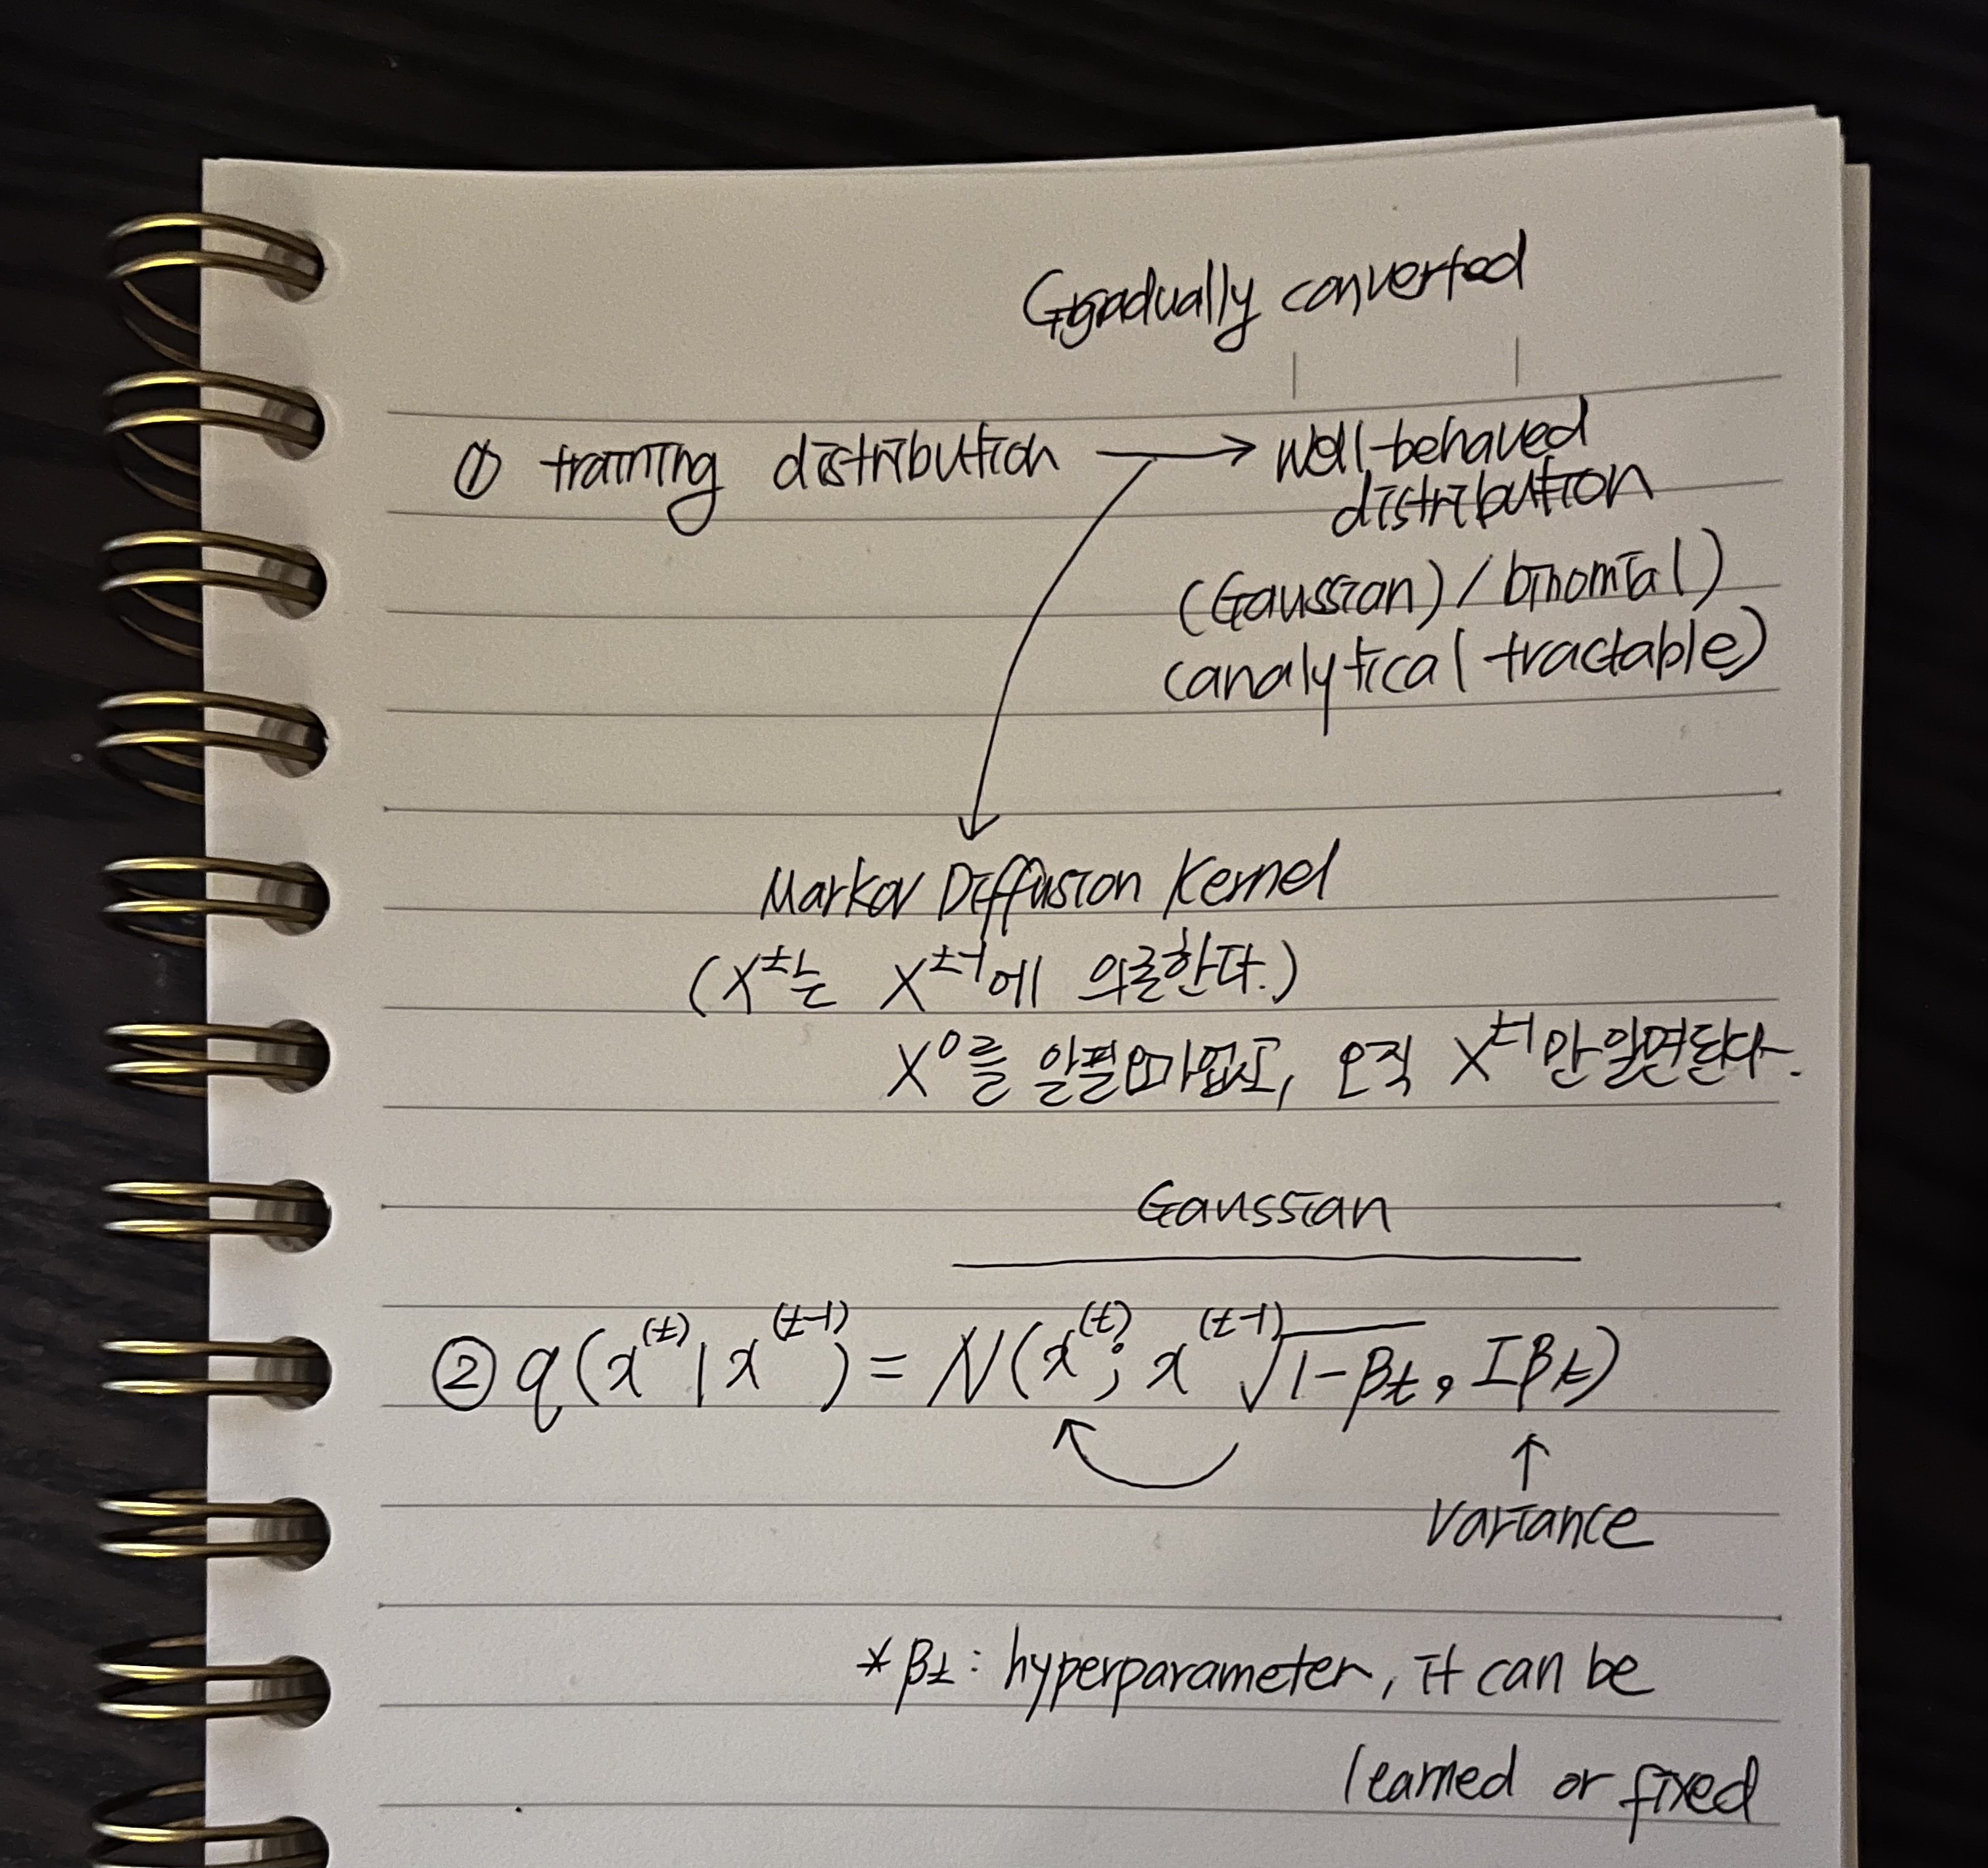 Ggradually converted
① training distribution → well-behaved
distribution
(Gaussian) / binomial)
(analytical tractable)
Markov Diffusion Kernel
(X^t는 X^t-1에 의존한다.)
X^0를 알필요가없고, 오직 X^t-1만 알면된다.
Gaussian
② q(x^(t) | x^(t-1)) = N(x^(t); x^(t-1)√1-βt, Iβt)
↑
Variance
* βt : hyperparameter, it can be
learned or fixed